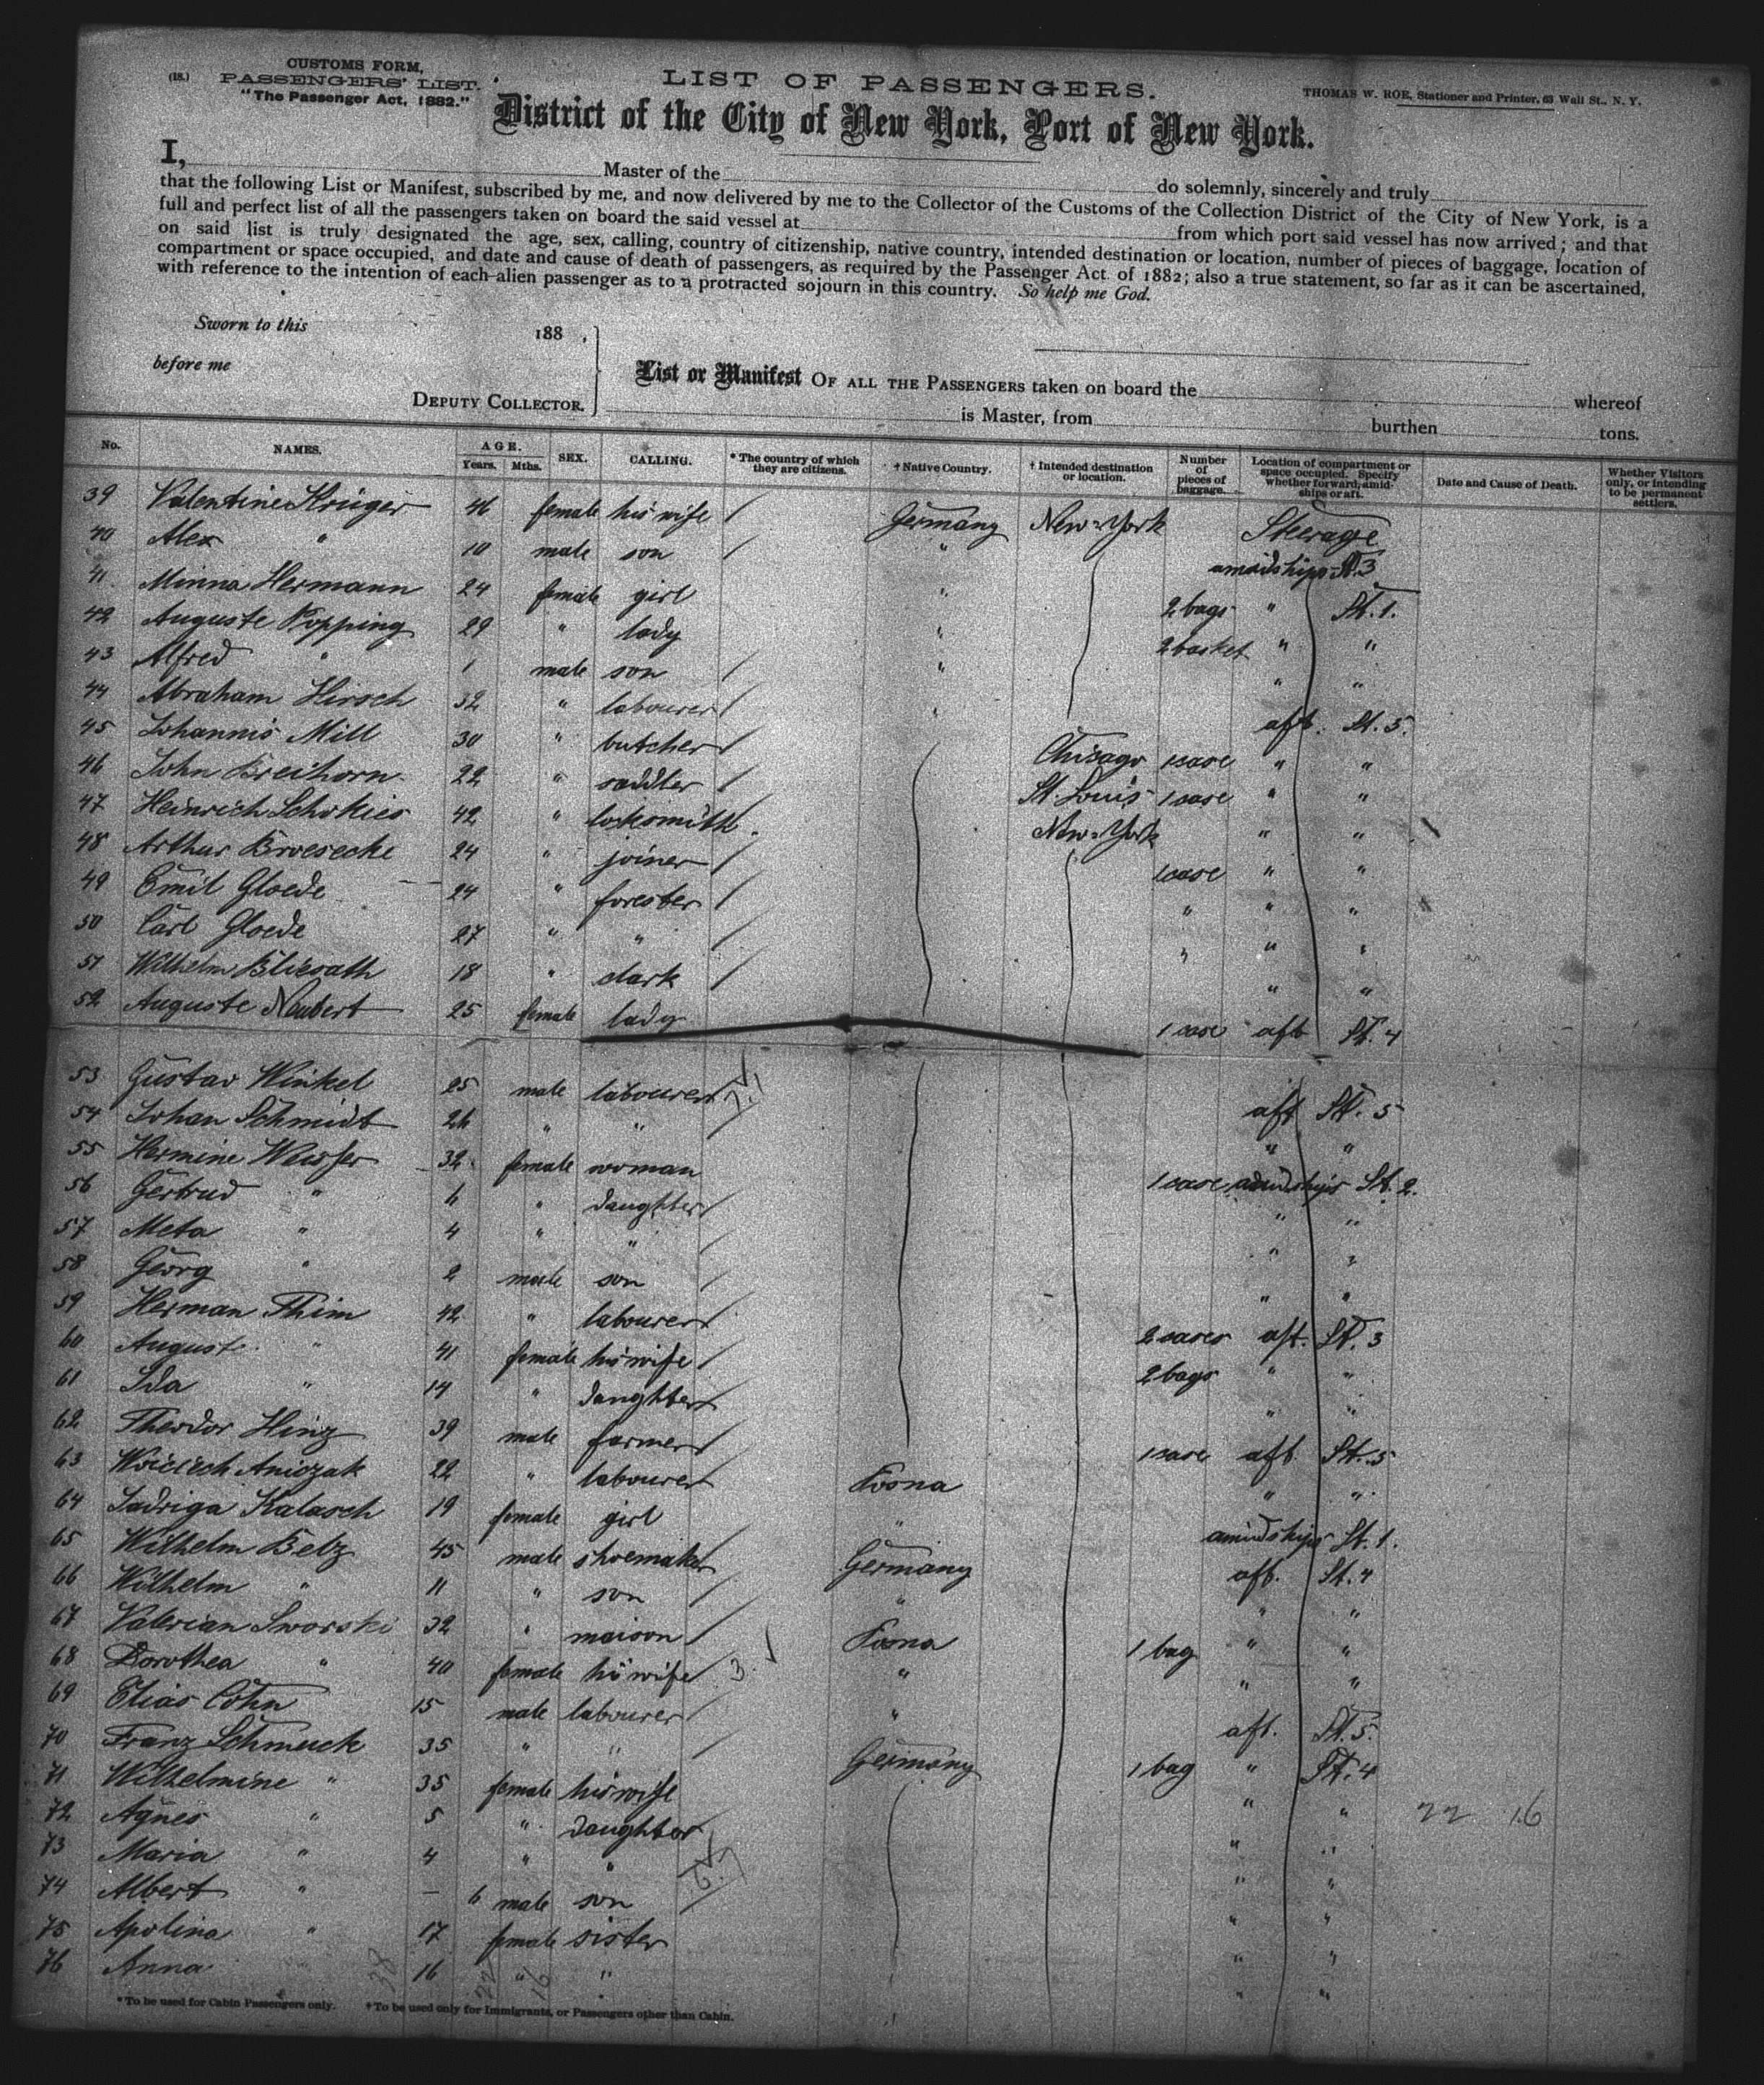 CUSTOMS FORM,
(18.) PASSENGERS' LIST.
"The Passenger Act, 1882."
LIST OF PASSENGERS.
THOMAS W. ROE, Stationer and Printer, 63 Wall St., N. Y.
District of the City of New York, Port of New York.
I, Master of the do solemnly, sincerely and truly
that the following List or Manifest, subscribed by me, and now delivered by me to the Collector of the Customs of the Collection District of the City of New York, is a
full and perfect list of all the passengers taken on board the said vessel at from which port said vessel has now arrived; and that
on said list is truly designated the age, sex, calling, country of citizenship, native country, intended destination or location, number of pieces of baggage, location of
compartment or space occupied, and date and cause of death of passengers, as required by the Passenger Act. of 1882; also a true statement, so far as it can be ascertained,
with reference to the intention of each alien passenger as to a protracted sojourn in this country. So help me God.
Sworn to this 188 .
before me
DEPUTY COLLECTOR.
List or Manifest OF ALL THE PASSENGERS taken on board the whereof
is Master, from burthen tons.
No. NAMES. AGE. Years. Mths. SEX. CALLING. * The country of which they are citizens. † Native Country. † Intended destination or location. Number of pieces of baggage. Location of compartment or space occupied. Specify whether forward, amidships or aft. Date and Cause of Death. Whether Visitors only, or intending to be permanent settlers.
39 Valentine Krüger 46 female his wife / Germany New-York Steerage
40 Alex " 10 male son / " amidships St. 3
41 Minna Hermann 24 female girl " 2 bags " St. 1.
42 Auguste Popping 29 " lady " 2 basket " "
43 Alfred " 1 male son / " " "
44 Abraham Hirsch 32 " labourer / " aft. St. 5.
45 Johannis Mill 30 " butcher / Chicago 1 case " "
46 John Breihorn 22 " saddler / St. Louis 1 case " "
47 Heinrich Schokies 42 " locksmith New-York " "
48 Arthur Broesecke 24 " joiner / 1 case " "
49 Emil Gloede 24 " forester / " " "
50 Carl Gloede 27 " " / " " "
51 Wilhelm Bliesath 18 " clark / " "
52 Auguste Neubert 25 female lady 1 case aft St. 4
53 Gustav Winkel 25 male labourer aft St. 5
54 Johan Schmidt 26 " " / " "
55 Hermine Weisser 32 female woman 1 case amidships St. 2.
56 Gertrud " 6 " daughter / " "
57 Meta " 4 " " / " "
58 Georg " 2 male son / " "
59 Herman Thim 42 " labourer / 2 cases aft. St. 3
60 Auguste " 41 female his wife / 2 bags " "
61 Ida " 14 " daughter / " "
62 Theodor Hinz 39 male farmer / 1 case aft St. 5
63 Woicech Aniczak 22 " labourer Posna " "
64 Jadriga Kalasch 19 female girl " amidships St. 1.
65 Wilhelm Belz 45 male shoemaker Germany aft. St. 4
66 Wilhelm " 11 " son / " " "
67 Valerian Sworski 32 " maison / Posna 1 bag " "
68 Dorothea " 40 female his wife / 3. " " "
69 Elias Cohn 15 male labourer / " aft. St. 5.
70 Franz Schmuck 35 " " / Germany 1 bag " St. 4
71 Wilhelmine " 35 female his wife " "
72 Agnes " 5 " daughter " " 22 16
73 Maria " 4 " " " "
74 Albert " — 6 male son / " "
75 Apolina " 17 female sister " "
76 Anna " 16 " " " "
38 22 16
* To be used for Cabin Passengers only. † To be used only for Immigrants, or Passengers other than Cabin.